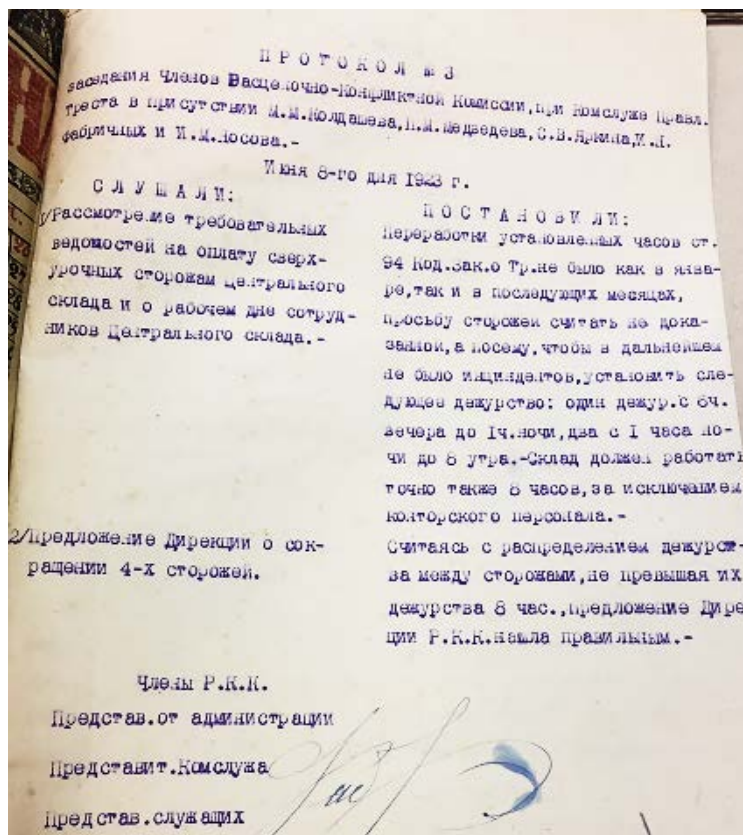 ПРОТОКОЛ №3
заседания Членов Расценочно-Конфликтной Комиссии, при Комслуже Правл.
Треста в присутствии М.М.Колдашева, П.М.Медведева, С.В.Яркина, И.Л.
Фабричных и И.М.Носова.-
Июня 8-го дня 1923 г.
СЛУШАЛИ:
1/Рассмотрение требовательных
ведомостей на оплату сверх-
урочных сторожам Центрального
склада и о рабочем дне сотруд-
ников Центрального склада.-
ПОСТАНОВИЛИ:
Переработки установленных часов ст.
94 Код.Зак.о Тр.не было как в янва-
ре,так и в последующих месяцах,
просьбу сторожей считать не дока-
занной,а посему,чтобы в дальнейшем
не было инциндентов,установить сле-
дующее дежурство: один дежур.с 6ч.
вечера до 1ч.ночи,два с 1 часа но-
чи до 8 утра.-Склад должен работать
точно также 8 часов,за исключением
конторского персонала.-
2/Предложение Дирекции о сок-
ращении 4-х сторожей.
Считаясь с распределением дежурст-
ва между сторожами,не превышая их
дежурства 8 час.,предложение Дире
ции Р.К.К.нашла правильным.-
Члены Р.К.К.
Представ.от администрации
Представит.Комслужа
Представ.служащих